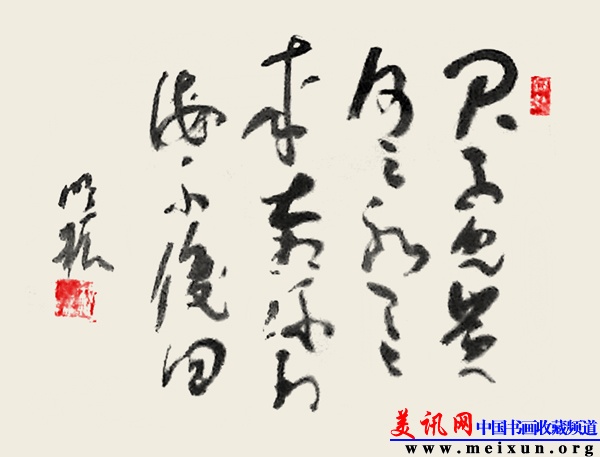 君不見黃
河之水天上
來奔流到
海不復回
美讯网 中国书画收藏频道
www.meixun.org